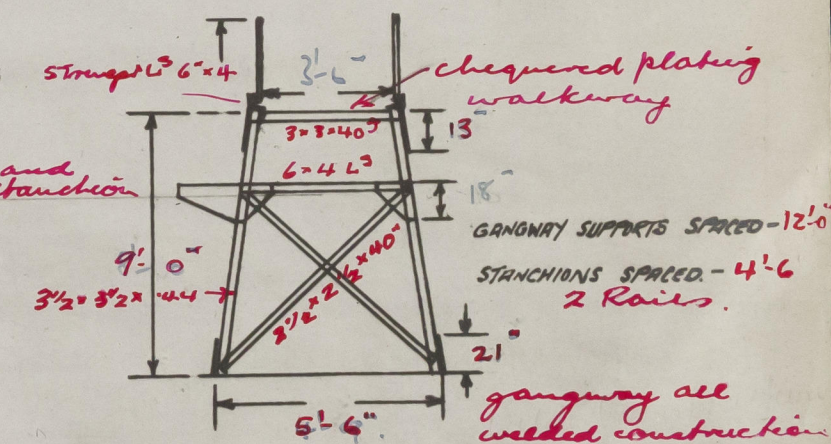 Stringer Ls 6" × 4
3'-6"
chequered plating
walkway
3 × 3 × 40s
13"
and
stanchion
6 × 4 Ls
18"
GANGWAY SUPPORTS SPACED - 12'-0"
9'- 0"
STANCHIONS SPACED. - 4'-6
2 Rails.
3 1/2 × 3 1/2 × .44
2 1/2 × 2 1/2 × 40"
21"
5'- 6"
gangway all
welded construction